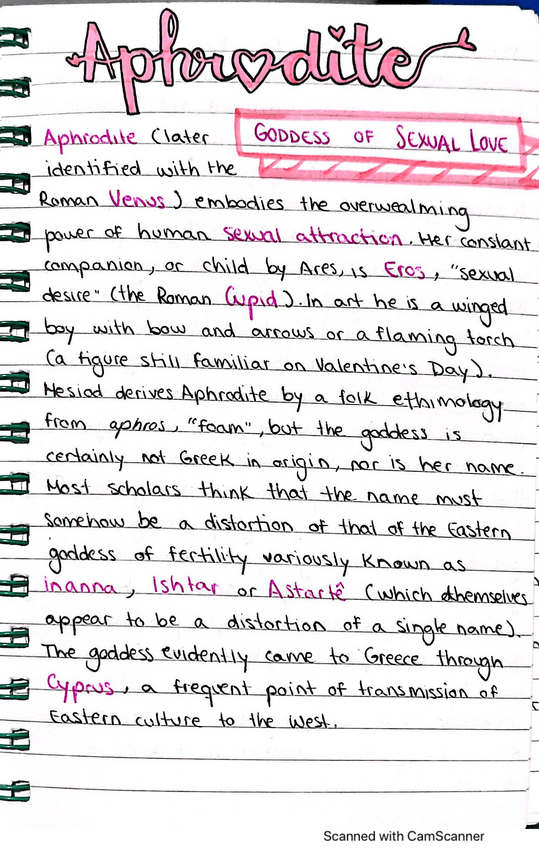 Aphrodite
GODDESS OF SEXUAL LOVE
Aphrodite (later
identified with the
Roman Venus) embodies the overwealming
power of human sexual attraction. Her constant
companion, or child by Ares, is Eros, "sexual
desire" (the Roman Cupid). In art he is a winged
boy with bow and arrows or a flaming torch
(a figure still familiar on Valentine's Day).
Hesiod derives Aphrodite by a folk ethimology
from aphros, "foam", but the goddess is
certainly not Greek in origin, nor is her name.
Most scholars think that the name must
somehow be a distortion of that of the Eastern
goddess of fertility variously known as
inanna, Ishtar or Astartê (which themselves
appear to be a distortion of a single name).
The goddess evidently came to Greece through
Cyprus, a frequent point of transmission of
Eastern culture to the West.
Scanned with CamScanner